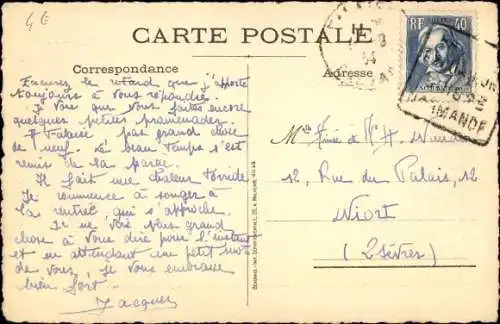 4€
CARTE POSTALE
Correspondance
Adresse
RF 40
Excusez le retard que j'apporte
toujours à vous répondre.
Je vois que vous faites encore
quelques petites promenades.
A Falaise pas grand chose
de neuf. Le beau temps s'est
remis de la partie.
Il fait une chaleur torride
Je commence à songer à
la rentrée, qui s'approche.
Je ne vois plus grand
chose à vous dire pour l'instant
et en attendant un petit mot
de vous, je vous embrasse
bien fort.
Jacques
12, Rue du Palais, 12
Niort
(2 Sèvres)